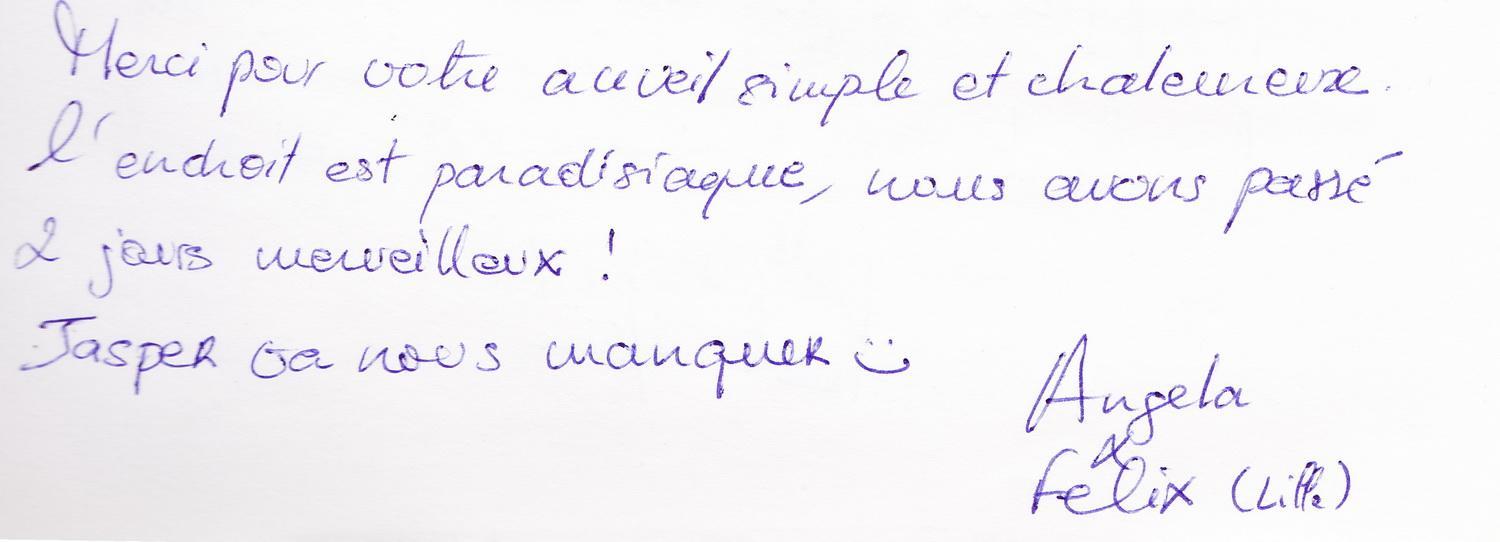 Merci pour votre accueil simple et chaleureux.
L'endroit est paradisiaque, nous avons passé
2 jours merveilloux !
Jasper va nous manquer :)
Angela
&
Félix (Lille)